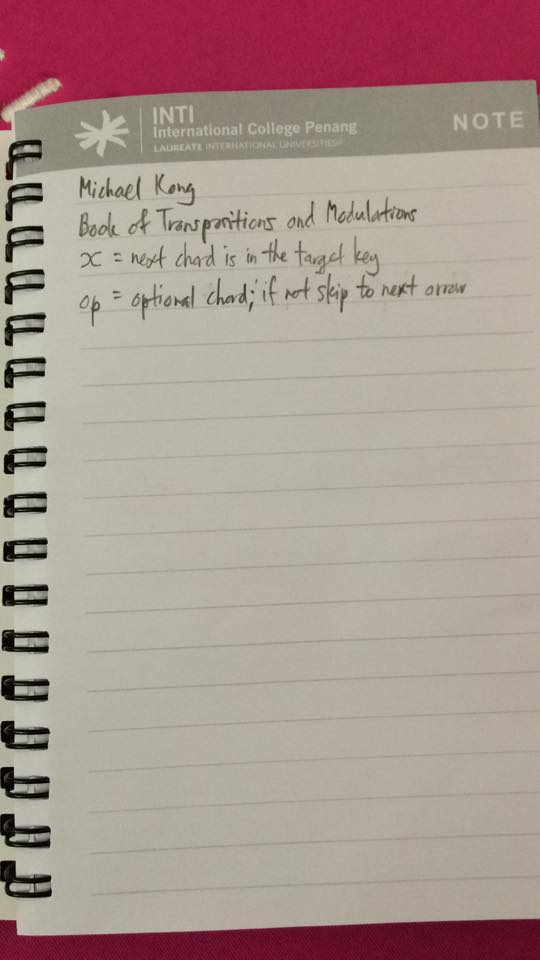 INTI
International College Penang
LAUREATE INTERNATIONAL UNIVERSITIES®
NOTE
Michael Kong
Book of Transpositions and Modulations
x = next chord is in the target key
op = optional chord; if not skip to next arrow